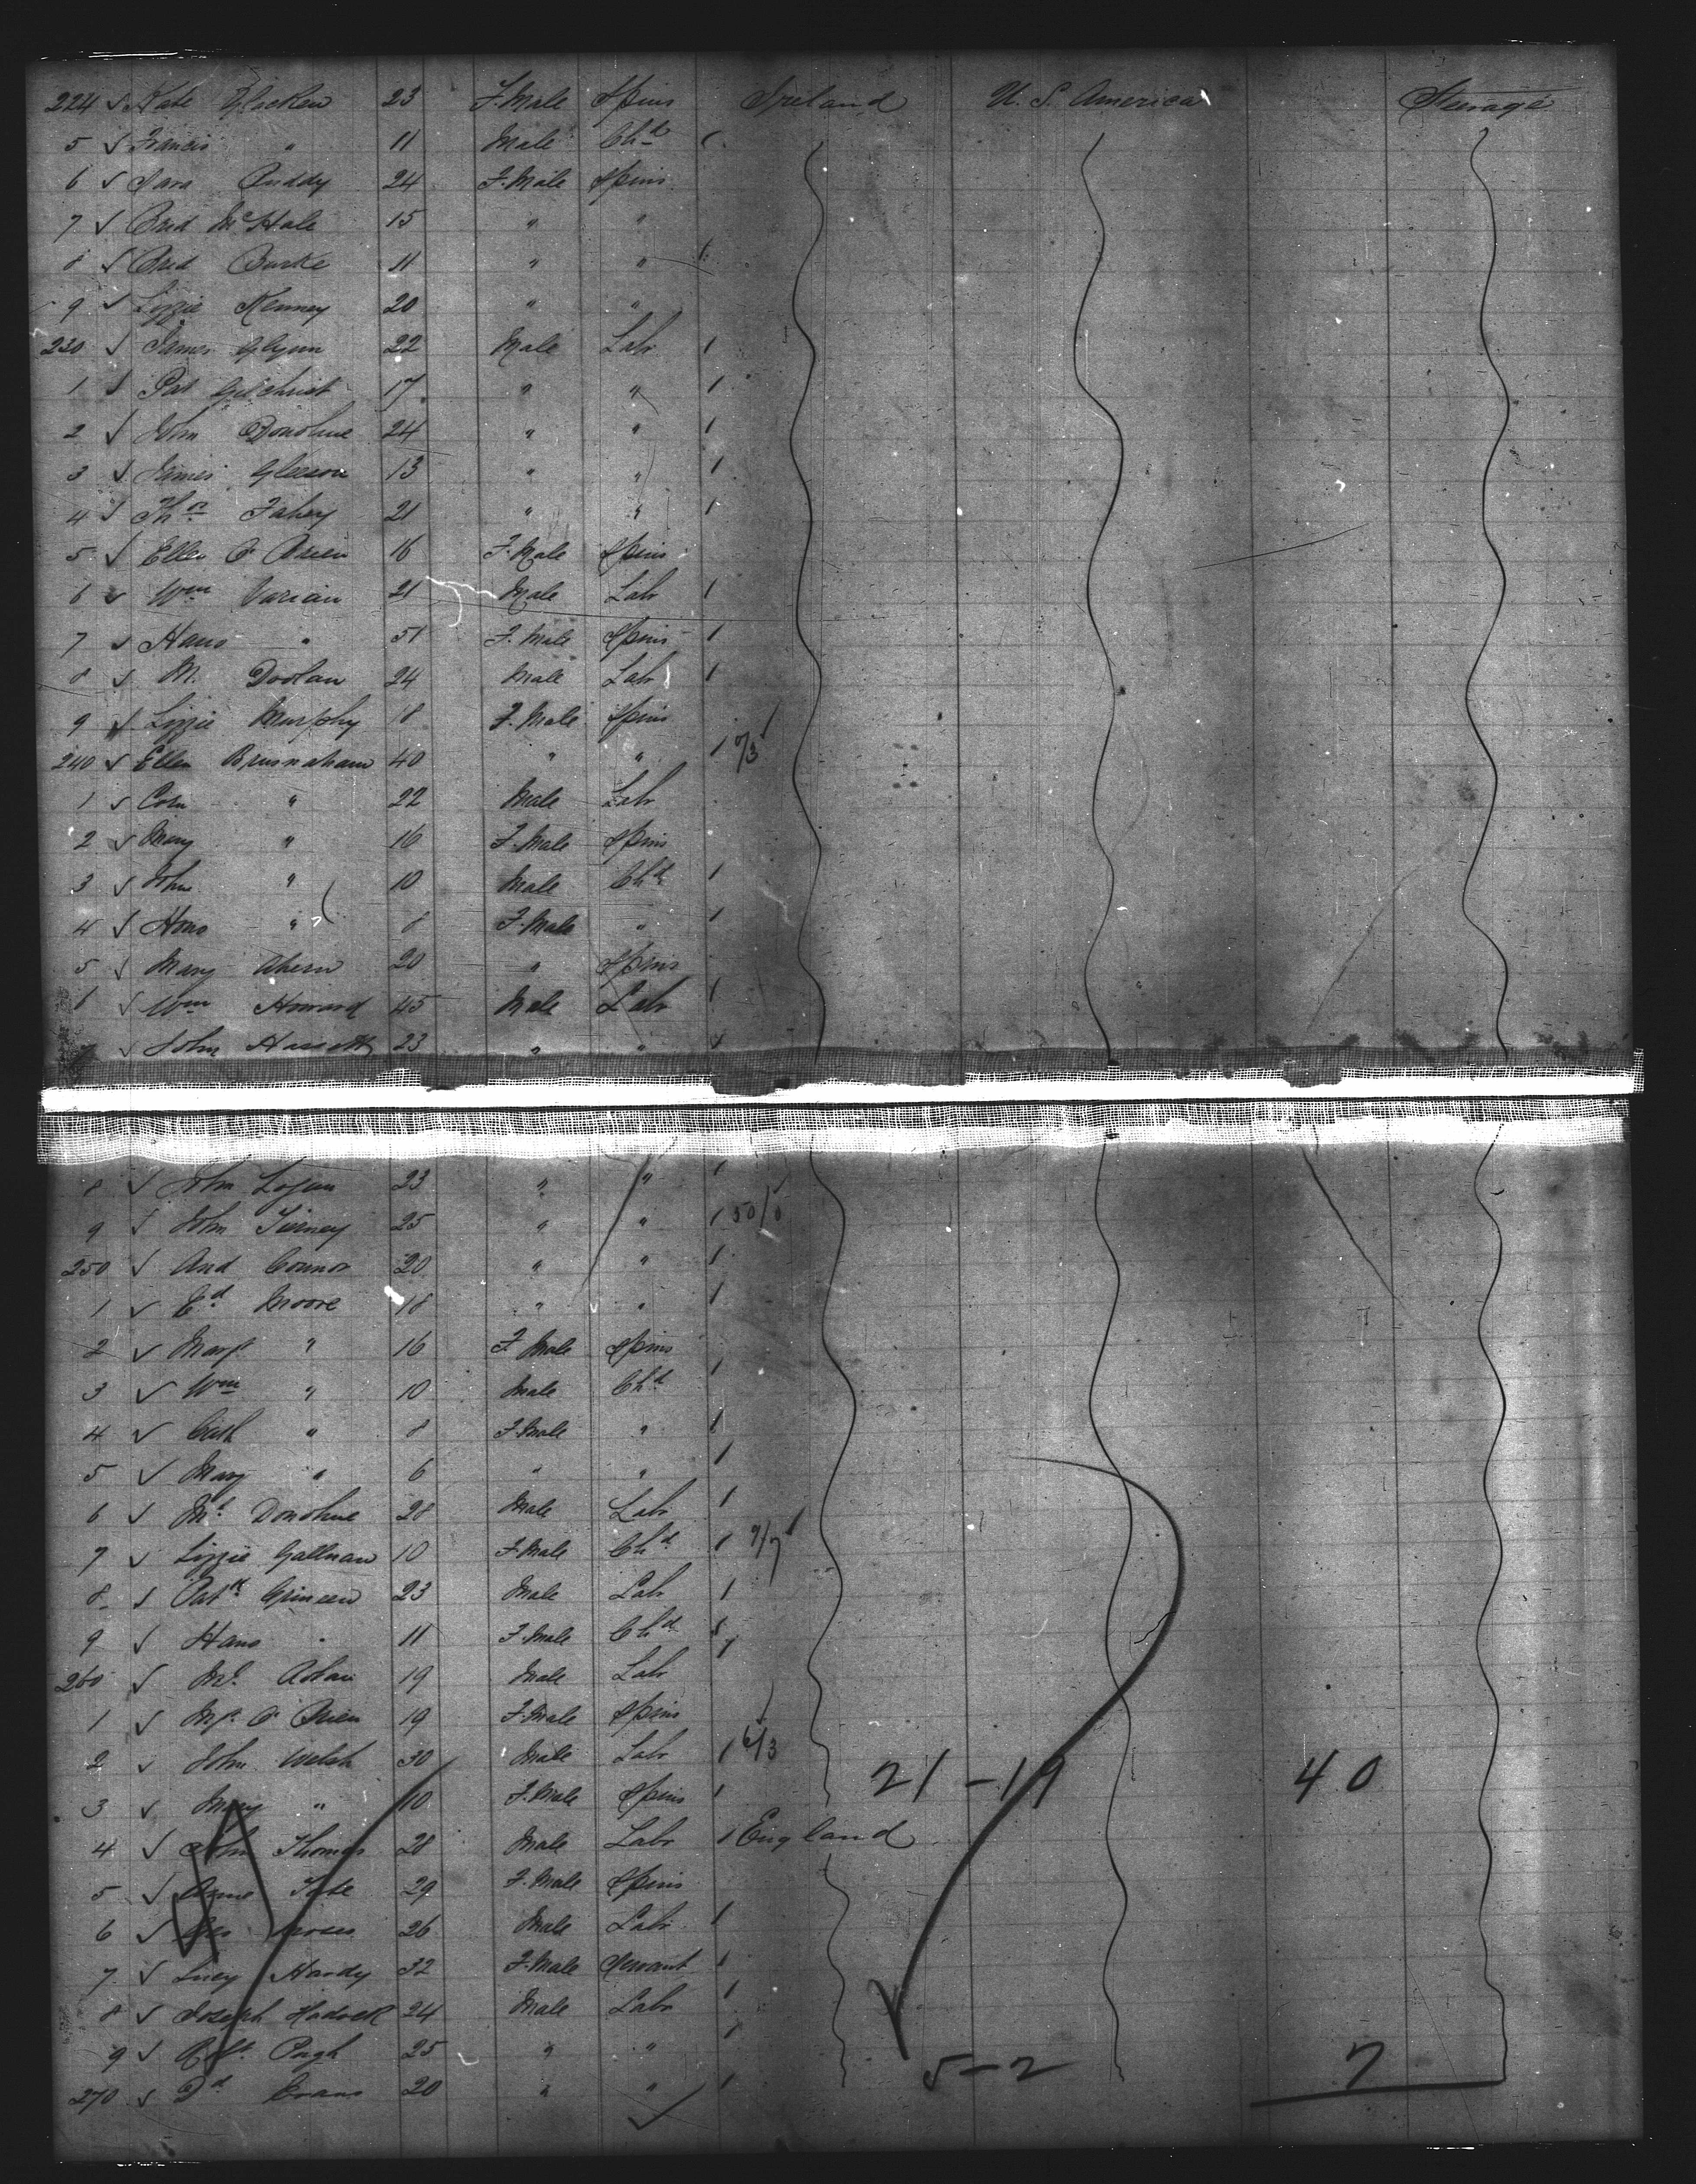 224 ✓ Kate Glackew 23 F. Male Spins Ireland U. S. America Steerage
5 ✓ Francis " 11 Male Chd
6 ✓ Sara Cuddy 24 F. Male Spins
7 ✓ Brid McHale 15 " "
8 ✓ Brid Burke 11 " "
9 ✓ Lizzie Kenney 20 " "
230 ✓ James Glynn 22 Male Labr 1
1 ✓ Pat Gilchrist 17 " " 1
2 ✓ John Donohue 24 " " 1
3 ✓ James Gleeson 13 " " 1
4 ✓ Ths Fahey 21 " " 1
5 ✓ Ellen O'Brien 16 F. Male Spins
6 ✓ Wm Varian 21 Male Labr 1
7 ✓ Hano " 51 F. Male Spins 1
8 ✓ M. Doolan 24 Male Labr 1
9 ✓ Lizzie Murphy 18 F. Male Spins
240 ✓ Ellen Brusnaham 40 " " 1
1 ✓ Corn " 22 Male Labr
2 ✓ Mary " 16 F. Male Spins
3 ✓ John " 10 Male Chd 1
4 ✓ Hano " 8 F. Male " 1
5 ✓ Mary Ahern 20 " Spins
6 ✓ Wm Howard 45 Male Labr 1
✓ John Hassett 23 " "
8 ✓ John Logan 23 " " 1
9 ✓ John Tierney 25 " " 1
250 ✓ And Connor 20 " " 1
1 ✓ Ed Moore 18 " " 1
2 ✓ Margt " 16 F. Male Spins
3 ✓ Wm " 10 Male Chd 1
4 ✓ Cath " 8 F. Male " 1
5 ✓ Mary " 6 " " 1
6 ✓ Ml Donohue 28 Male Labr 1
7 ✓ Lizzie Gallnaw 10 F. Male Chd 1 7/7
8 ✓ Patk Grineen 23 Male Labr 1
9 ✓ Hano " 11 F. Male Chd
260 ✓ Ml 19 Male Labr 1
1 ✓ O'Brien 19 F. Male Spins
2 ✓ John Welsh 30 Male Labr 1 6/3 21-19 40
3 ✓ Mary " 10 F. Male Spins 1
4 ✓ John Thomas 28 Male Labr 1 England
5 ✓ Anne 29 F. Male Spins
6 ✓ Moses 26 Male Labr 1
7 ✓ Lucy Hardy 32 F. Male Servant 1
8 ✓ Joseph Hadock 24 Male Labr 1
9 ✓ Robt Pugh 25 " " 1 5-2 7
270 ✓ Dd Evans 20 " " 1